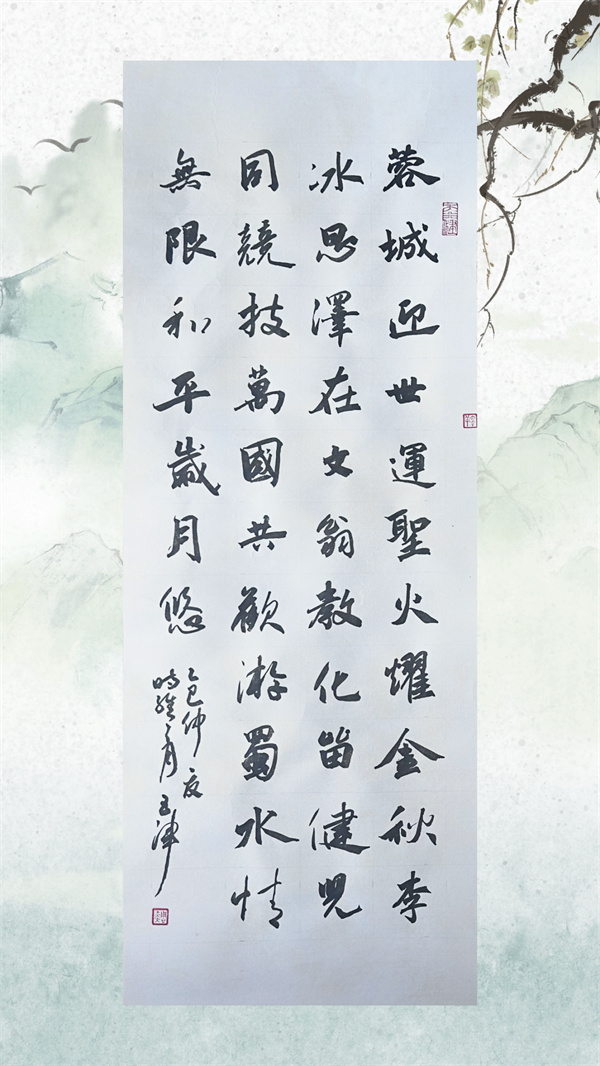 蓉城迎世運聖火耀金秋李
冰恩澤在文翁教化留健兒
同競技萬國共歡游蜀水情
無限和平歲月悠
乙巳仲夏
時維六月玉津